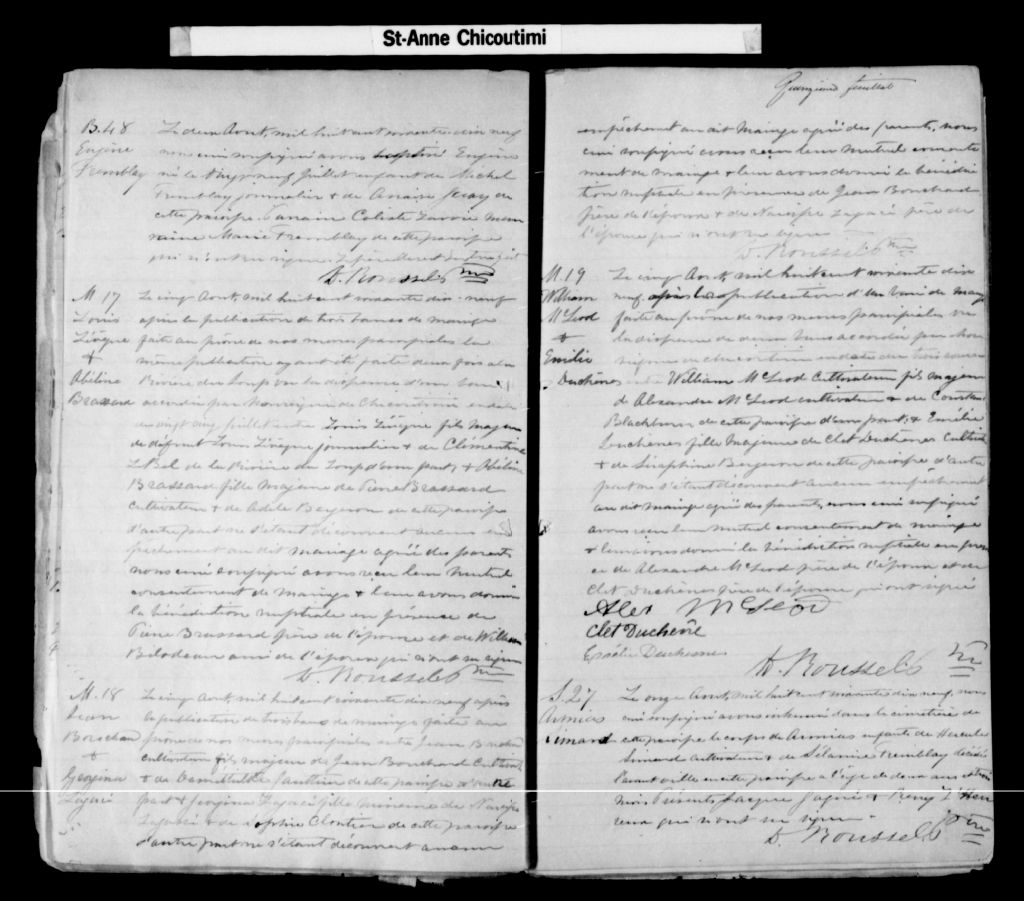 St-Anne Chicoutimi
feuillet
B. 48
Eugène
Tremblay
Le deux Aout, mil huit cent soixante dix neuf
nous curé soussigné avons baptisé Eugène
né le vingt neuf Juillet enfant de Michel
Tremblay journalier & de
cette paroisse Parrain Lavoie mar
raine Marie Tremblay de cette paroisse
qui n'ont su signer
D. Roussel Ptre
M 17
Louis
Lévêque
&
Obéline
Brassard
Le cinq Aout, mil huit cent soixante dix-neuf
après la publication de trois bans de mariage
faite au prône de nos messes paroissiales la
même publication ayant été faite deux fois à la
Rivière du Loup vu la dispense d'un ban
accordée par Monseigneur de Chicoutimi en date
du vingt juillet entre Louis Lévêque fils majeur
de défunt Louis Lévêque journalier & de Clémentine
LeBel de la Rivière du Loup d'une part, & Obéline
Brassard fille majeure de Pierre Brassard
cultivateur & de Adèle Bergeron de cette paroisse
d'autre part ne s'étant découvert aucun em
pêchement au dit mariage agréé des parents
nous curé soussigné avons reçu leur mutuel
consentement de mariage & leur avons donné
la bénédiction nuptiale en présence de
Pierre Brassard père de l'épouse et de William
Bilodeau ami de l'époux qui n'ont su signer
D. Roussel Ptre
M. 18
Jean
Bouchard
&
Georgina
Lagacé
Le cinq Aout, mil huit cent soixante dix neuf après
la publication de trois bans de mariage faite au
prône de nos messes paroissiales entre Jean Bouchard
cultivateur fils majeur de Jean Bouchard Cultivateur
& de Gauthier de cette paroisse d'une
part & Georgina Lagacé fille mineure de Narcisse
Lagacé & de Sophie Cloutier de cette paroisse
d'autre part ne s'étant découvert aucun
empêchement au dit Mariage agréé des parents, nous
curé soussigné avons reçu leur mutuel consente
ment de mariage & leur avons donné la bénédic
tion nuptiale en présence de Jean Bouchard
père de l'époux & de Narcisse Lagacé père de
l'épouse qui n'ont su signer
D. Roussel Ptre
M. 19
William
McLeod
&
Emélie
Duchênes
Le cinq Aout, mil huit cent soixante dix
neuf, après la publication d'un ban de mariage
faite au prône de nos messes paroissiales vu
la dispense de deux bans accordée par Mon
seigneur de Chicoutimi en date du trois courant
entre William McLeod Cultivateur fils majeur
d'Alexandre McLeod cultivateur & de
Blackburn de cette paroisse d'une part; & Emélie
Duchênes fille Majeure de Clet Duchênes Cultivateur
& de Séraphine Bergeron de cette paroisse d'autre
part ne s'étant découvert aucun empêchement
au dit mariage agréé des parents, nous curé soussigné
avons reçu leur mutuel consentement de mariage
& leur avons donné la bénédiction nuptiale en présen
ce de Alexandre McLeod père de l'époux et de
Clet Duchênes père de l'épouse qui ont signé
Alex McLeod
Clet Duchêne
Emélie Duchesne
D. Roussel Ptre
S. 27
Arméias
Simard
Le onze Aout, mil huit cent soixante dix neuf, nous
curé soussigné avons inhumé dans le cimetière de
cette paroisse le corps de enfant de Hercule
Simard cultivateur & de Tremblay décédé
l'avant veille en cette paroisse à l'âge de deux ans et trois
mois Présents Jacques Gagné & Rémy L'Heu
reux qui n'ont su signer
D. Roussel Ptre